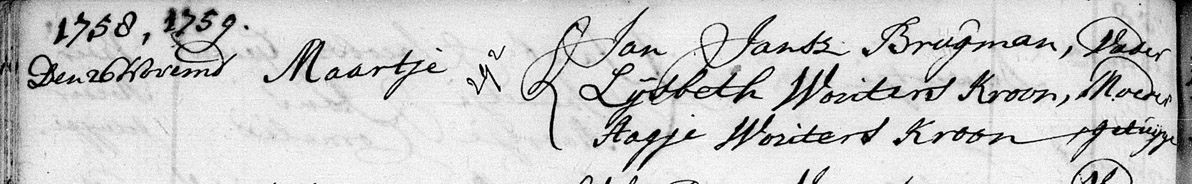 1758, 1759.
Den 26 Novemb Maartje Jan Jansz Brugman, Vader
Lijsbeth Wouters Kroon, Moeder
Aagje Wouters Kroon getuyge